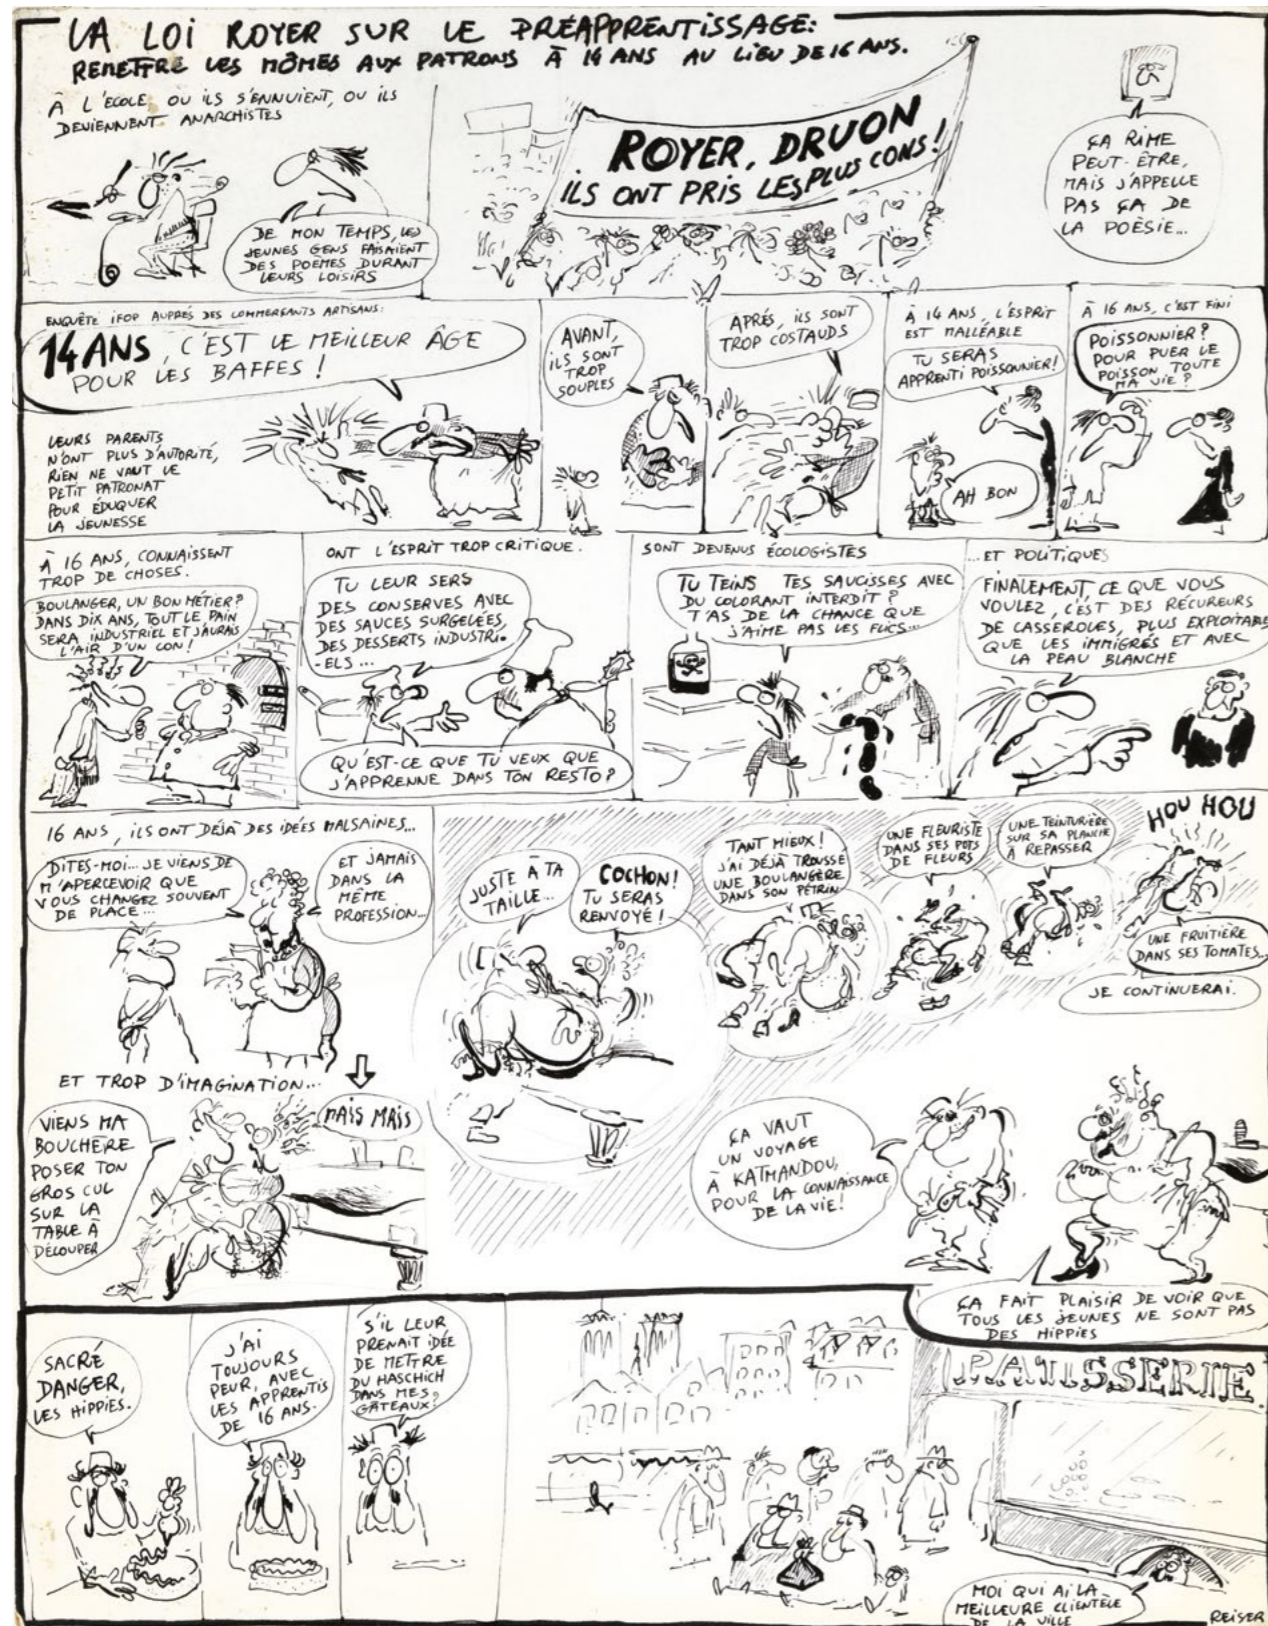 LA LOI ROYER SUR LE PRÉAPPRENTISSAGE:
REMETTRE LES MÔMES AUX PATRONS À 14 ANS AU LIEU DE 16 ANS.
À L'ECOLE, OU ILS S'ENNUIENT, OU ILS
DEVIENNENT ANARCHISTES
DE MON TEMPS, LES
JEUNES GENS FAISAIENT
DES POEMES DURANT
LEURS LOISIRS
ROYER, DRUON
ILS ONT PRIS LES PLUS CONS!
ÇA RIME
PEUT-ÊTRE,
MAIS J'APPELLE
PAS ÇA DE
LA POÈSIE...
ENQUÊTE IFOP AUPRÉS DES COMMERÇANTS ARTISANS:
14 ANS, C'EST LE MEILLEUR ÂGE
POUR LES BAFFES!
LEURS PARENTS
N'ONT PLUS D'AUTORITÉ,
RIEN NE VAUT LE
PETIT PATRONAT
POUR ÉDUQUER
LA JEUNESSE
AVANT,
ILS SONT
TROP
SOUPLES
APRÉS, ILS SONT
TROP COSTAUDS
À 14 ANS, L'ESPRIT
EST MALLÉABLE
TU SERAS
APPRENTI POISSONNIER!
AH BON
À 16 ANS, C'EST FINI
POISSONNIER?
POUR PUER LE
POISSON TOUTE
MA VIE?
À 16 ANS, CONNAISSENT
TROP DE CHOSES.
BOULANGER, UN BON MÉTIER?
DANS DIX ANS, TOUT LE PAIN
SERA INDUSTRIEL ET J'AURAIS
L'AIR D'UN CON!
ONT L'ESPRIT TROP CRITIQUE.
TU LEUR SERS
DES CONSERVES AVEC
DES SAUCES SURGELÉES,
DES DESSERTS INDUSTRI-
-ELS...
QU'EST-CE QUE TU VEUX QUE
J'APPRENNE DANS TON RESTO?
SONT DEVENUS ÉCOLOGISTES
TU TEINS TES SAUCISSES AVEC
DU COLORANT INTERDIT?
T'AS DE LA CHANCE QUE
J'AIME PAS LES FLICS...
...ET POLITIQUES
FINALEMENT, CE QUE VOUS
VOULEZ, C'EST DES RÉCUREURS
DE CASSEROLES, PLUS EXPLOITABLE
QUE LES IMMIGRÉS ET AVEC
LA PEAU BLANCHE
16 ANS, ILS ONT DÉJÀ DES IDÉES MALSAINES...
DITES-MOI... JE VIENS DE
M'APERCEVOIR QUE
VOUS CHANGEZ SOUVENT
DE PLACE...
ET JAMAIS
DANS LA
MÊME
PROFESSION...
ET TROP D'IMAGINATION...
VIENS MA
BOUCHÈRE
POSER TON
GROS CUL
SUR LA
TABLE À
DÉCOUPER
MAIS MAIS
JUSTE À TA
TAILLE...
COCHON!
TU SERAS
RENVOYÉ!
TANT MIEUX!
J'AI DÉJÀ TROUSSÉ
UNE BOULANGÈRE
DANS SON PÉTRIN
UNE FLEURISTE
DANS SES POTS
DE FLEURS
UNE TEINTURIÈRE
SUR SA PLANCHE
À REPASSER
HOU HOU
UNE FRUITIÈRE
DANS SES TOMATES...
JE CONTINUERAI.
ÇA VAUT
UN VOYAGE
À KATHMANDOU,
POUR LA CONNAISSANCE
DE LA VIE!
ÇA FAIT PLAISIR DE VOIR QUE
TOUS LES JEUNES NE SONT PAS
DES HIPPIES
SACRÉ
DANGER,
LES HIPPIES.
J'AI
TOUJOURS
PEUR, AVEC
LES APPRENTIS
DE 16 ANS.
S'IL LEUR
PRENAIT IDÉE
DE METTRE
DU HASCHICH
DANS MES
GÂTEAUX?
PATISSERIE
MOI QUI AI LA
MEILLEURE CLIENTÈLE
DE LA VILLE
REISER